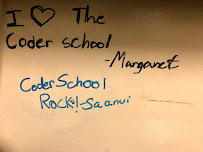 I ♡ The
Coder school
-Margaret
Coder School
Rocks!-Saanvi